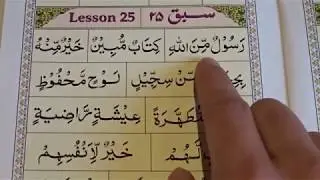 Lesson 25 سبق ۲۵
رَسُوْلٌ مِّنَ اللهِ كِتَابٌ مُّبِيْنٌ خَيْرٌ مِّنْهُ
مِّنْ سِجِّيْلٍ لَوْحٍ مَّحْفُوْظٍ
عِيْشَةٍ رَّاضِيَةٍ
لَّهُمْ خَيْرٌ لِّاَنْفُسِهِمْ